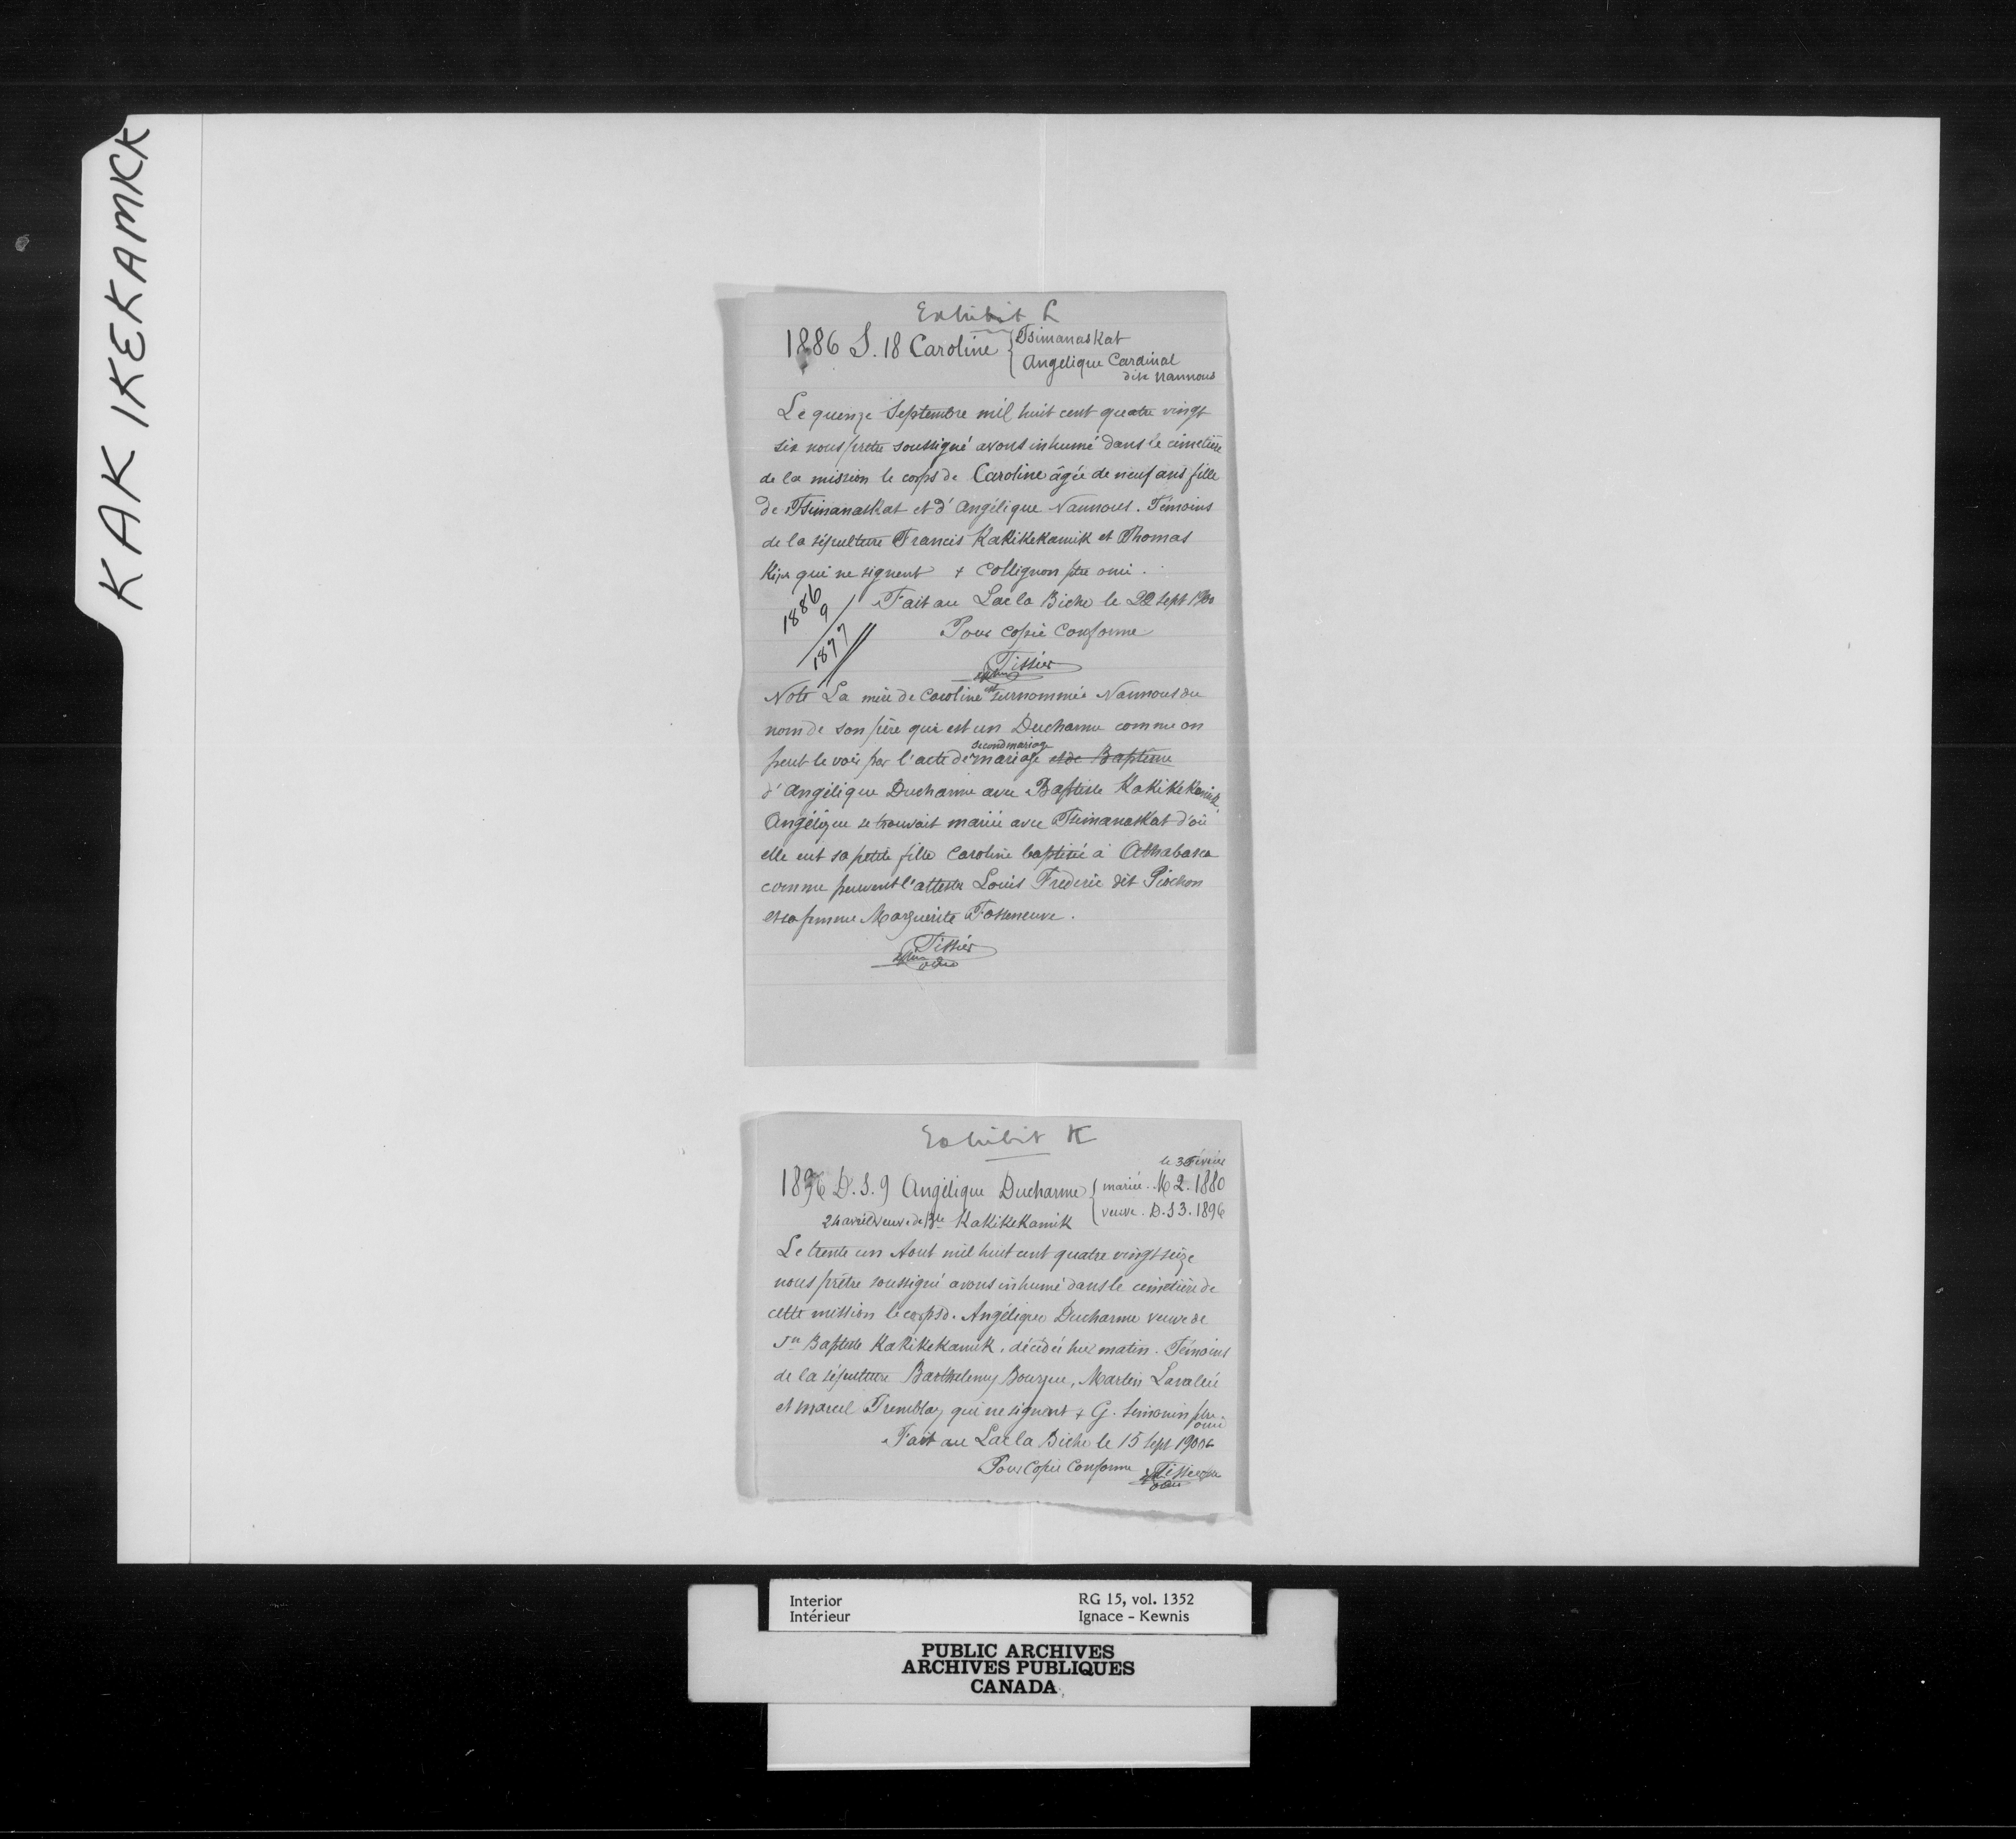 KAKIKEKAMICK
Exhibit L
1886 S. 18 Caroline { Tsimanaskat
Angelique Cardinal
dite Nannous
Le quinze Septembre mil huit cent quatre vingt
six nous prêtre soussigné avons inhumé dans le cimetière
de la mission le corps de Caroline âgée de neuf ans fille
de Tsimanaskat et d'Angélique Nannous. Témoins
de la sépulture Francis Kakikekamik et Thomas
qui ne signent + Collignon ptre omi.
Fait au Lac la Biche le 22 Sept 1900
1886
9
1877
Pour copie conforme
Tissier
Note La mère de Caroline est surnommée Nannous du
nom de son père qui est un Ducharme comme on
peut le voir par l'acte de second mariage mariage et de Baptême
d'Angélique Ducharme avec Baptiste Kakikekamik.
Angélique se trouvait mariée avec Tsimanaskat d'où
elle eut sa petite fille Caroline baptisée à Athabasca
comme peuvent l'attester Louis Frederic dit Piochon
et sa femme Marguerite Fosseneuve.
Tissier
omi
Exhibit K
le 3 Février
1896 D.S. 9 Angélique Ducharme { mariée. M 2. 1880
24 avril veuve de Bte Kakikekamik { veuve. D.S 3. 1896
Le trente un Aout mil huit cent quatre vingt seize
nous prêtre soussigné avons inhumé dans le cimetière de
cette mission le corps d. Angélique Ducharme veuve de
Jn Baptiste Kakikekamik, décédée hier matin. Témoins
de la sépulture Barthelemy Bourque, Martin Lavalée
et Marcel Tremblay qui ne signent + G. Simonin ptre
omi
Fait au Lac la Biche le 15 Sept 1900
Pour Copie Conforme Tissier ptre
omi
Interior
Intérieur
RG 15, vol. 1352
Ignace - Kewnis
PUBLIC ARCHIVES
ARCHIVES PUBLIQUES
CANADA